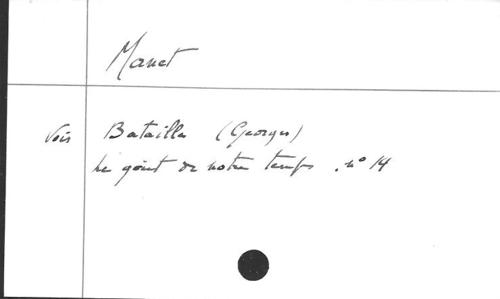 Manet
Voir Bataille (Georges)
Le goût de notre temps. n° 14